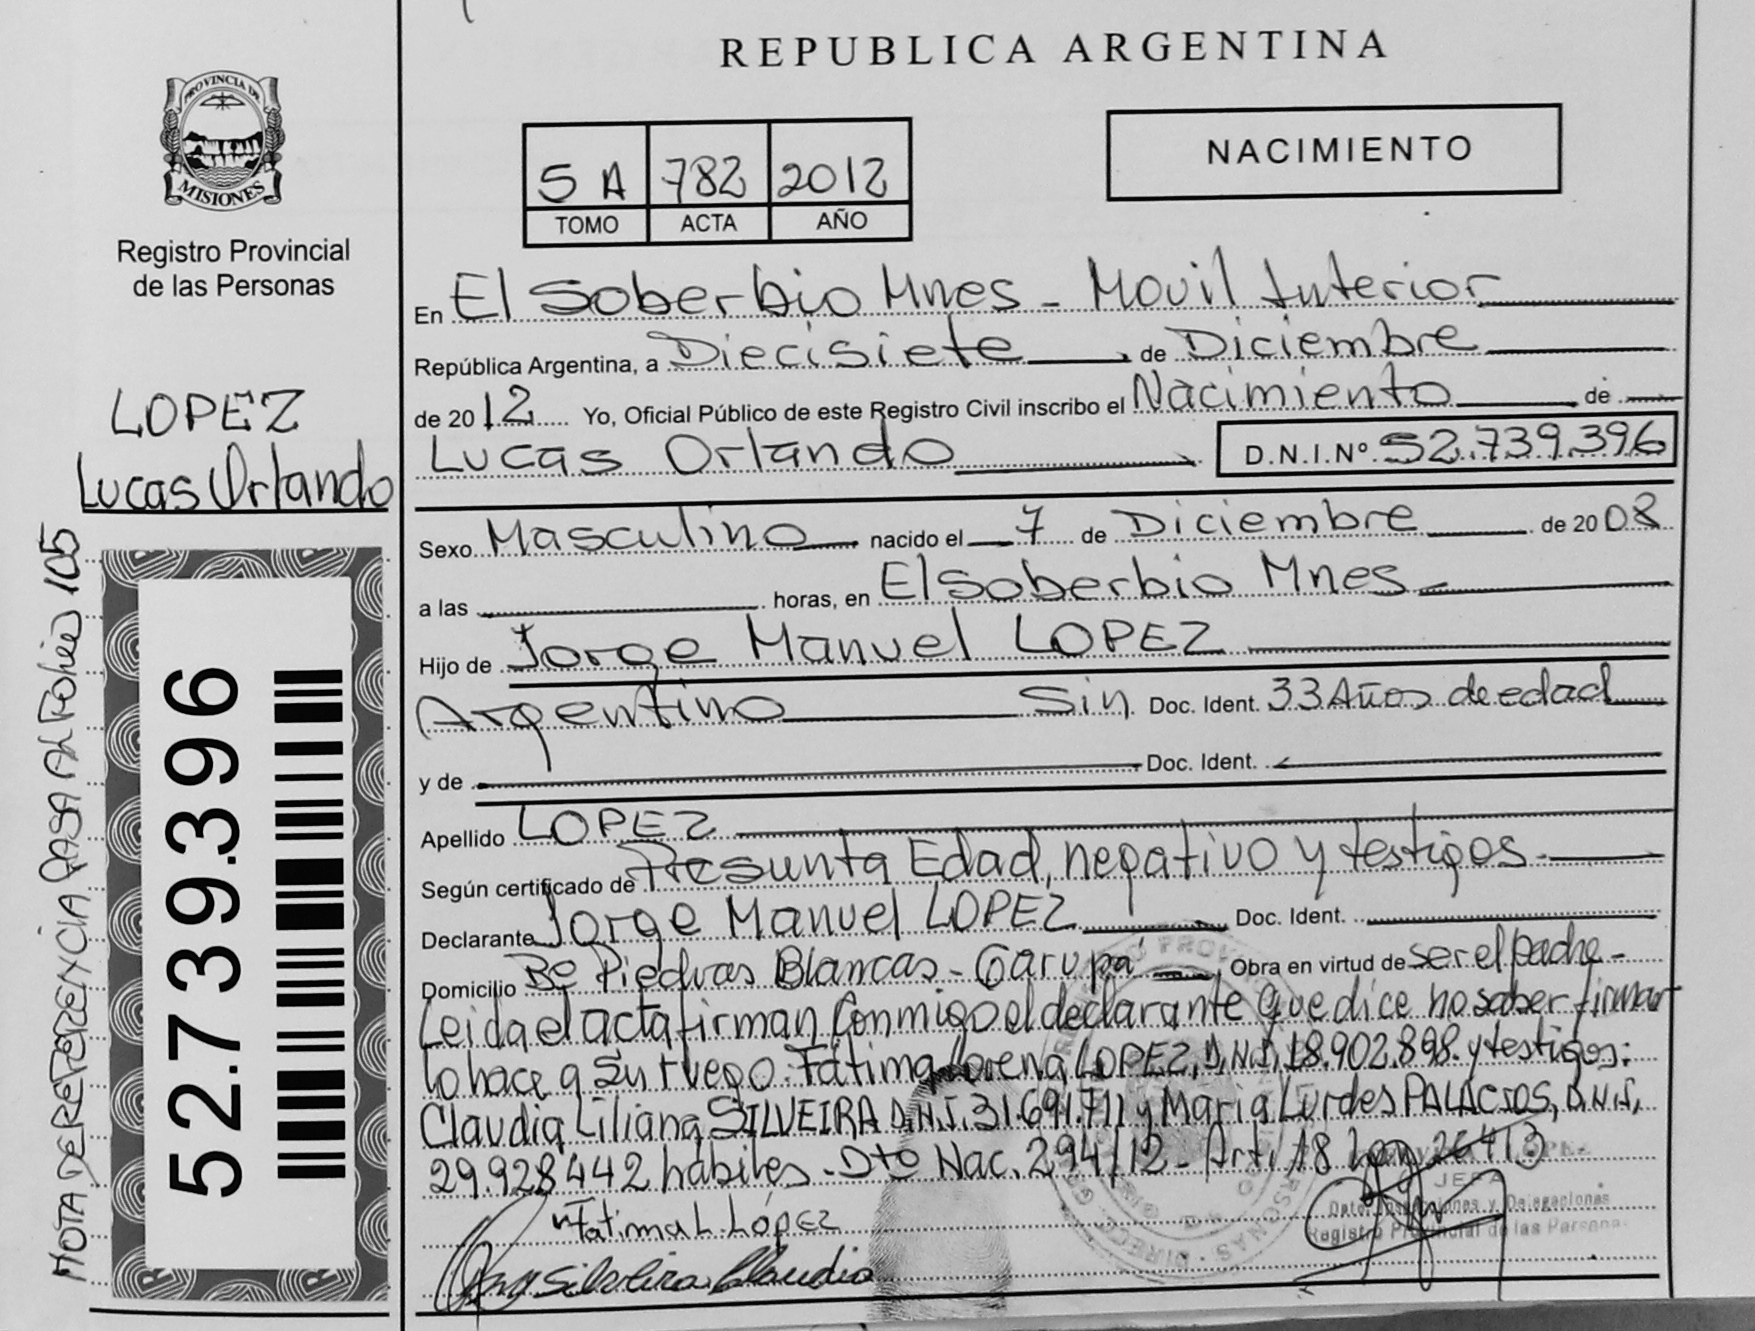 REPUBLICA ARGENTINA
PROVINCIA DE
MISIONES
Registro Provincial
de las Personas
5 A 782 2012
TOMO ACTA AÑO
NACIMIENTO
LOPEZ
Lucas Orlando
NOTA DE REFERENCIA PASA AL Folio 105
52.739.396
En El Soberbio Mnes - Movil Interior
República Argentina, a Diecisiete de Diciembre
de 2012 Yo, Oficial Público de este Registro Civil inscribo el Nacimiento de
Lucas Orlando D.N.I.Nº 52.739.396
Sexo Masculino nacido el 7 de Diciembre de 2008
a las horas, en El Soberbio Mnes
Hijo de Jorge Manuel LOPEZ
Argentino Sin Doc. Ident. 33 Años de edad
y de Doc. Ident.
Apellido LOPEZ
Según certificado de Presunta Edad, negativo y testigos
Declarante Jorge Manuel LOPEZ Doc. Ident.
Domicilio Bº Piedras Blancas - Garupá Obra en virtud de ser el padre -
Leida el acta firman Conmigo el declarante que dice no saber firmar
lo hace a su ruego: Fátima Lorena LOPEZ, D.N.I. 18.902.898. y testigos:
Claudia Liliana SILVEIRA D.N.I. 31.691.711 y Maria Lurdes PALACIOS, D.N.I,
29.928442 habiles - Dto Nac. 294/12 - Art. 18 Ley 26413
JEFA
Fatima L. López
Registro Provincial de las Persona
Silveira Claudia